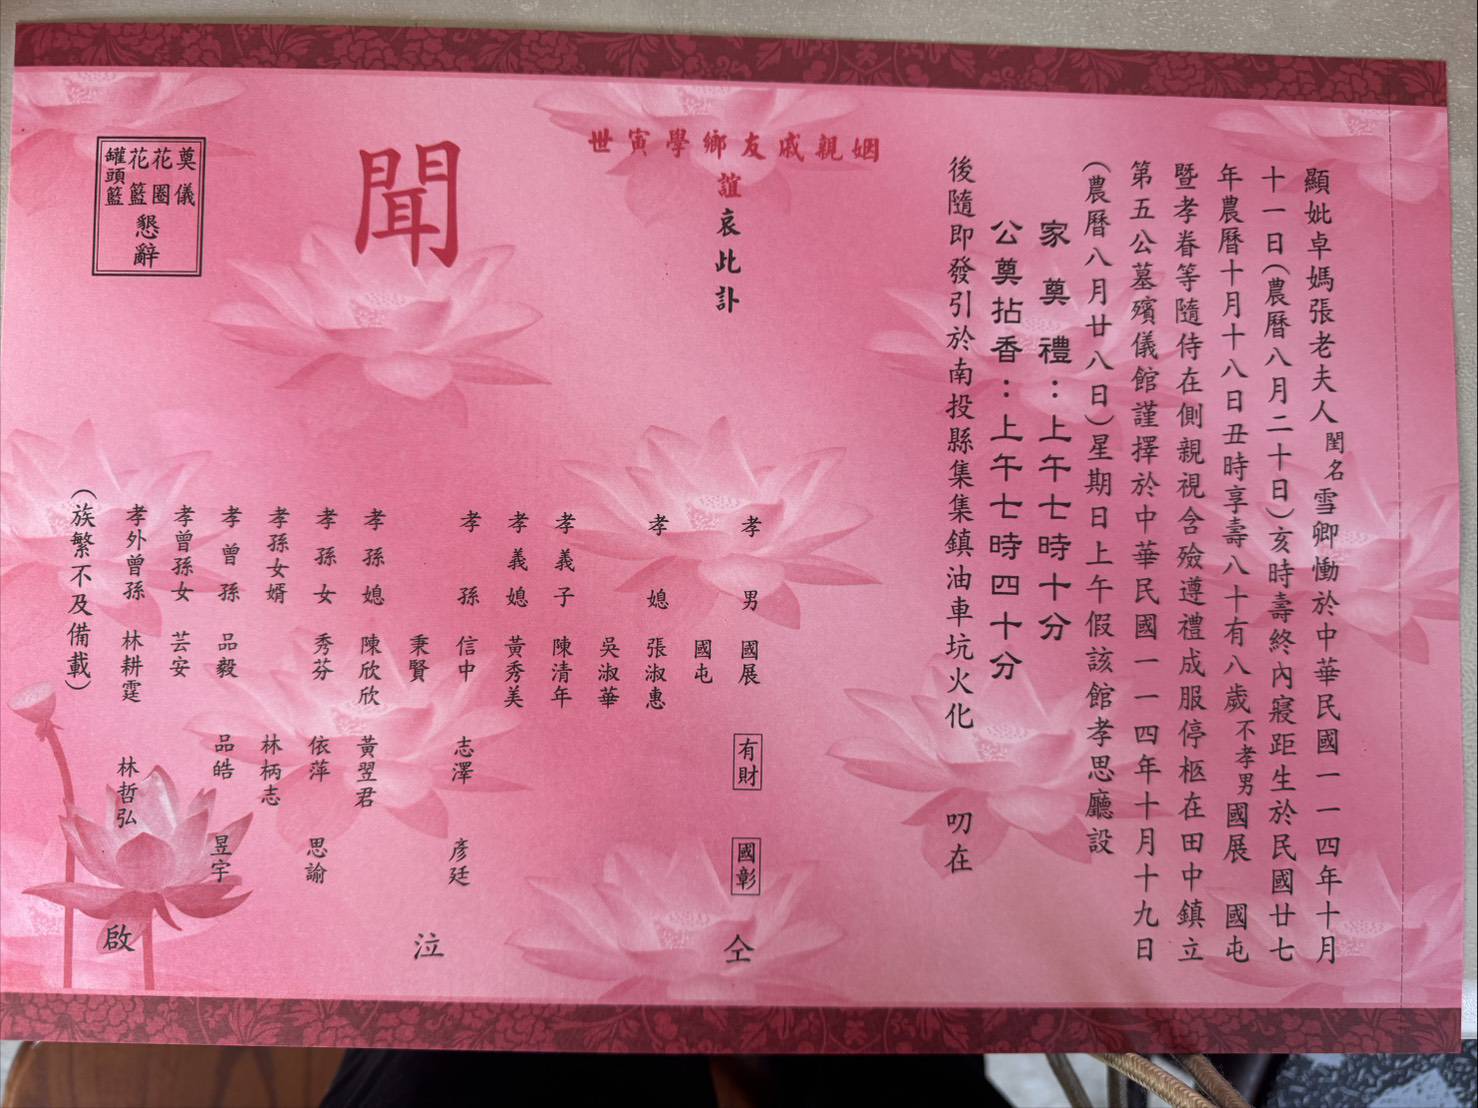 顯妣卓媽張老夫人閨名雪卿慟於中華民國一一四年十月
十一日(農曆八月二十日)亥時壽終內寢距生於民國廿七
年農曆十月十八日丑時享壽八十有八歲不孝男國展 國屯
暨孝眷等隨侍在側親視含殮遵禮成服停柩在田中鎮立
第五公墓殯儀館謹擇於中華民國一一四年十月十九日
(農曆八月廿八日)星期日上午假該館孝思廳設
家奠禮:上午七時十分
公奠拈香:上午七時四十分
後隨即發引於南投縣集集鎮油車坑火化 叨在
姻親戚友鄉學寅世
誼哀此訃
聞
孝男 國展 有財 國彰 仝
國屯
孝媳 張淑惠
吳淑華
孝義子 陳清年
孝義媳 黃秀美
孝孫 信中 志澤 彥廷
秉賢 泣
孝孫媳 陳欣欣 黃翌君
孝孫女 秀芬 依萍 思諭
孝孫女婿 林柄志
孝曾孫 品毅 品皓 昱宇
孝曾孫女 芸安
孝外曾孫 林耕霆 林哲弘 啟
(族繁不及備載)
奠儀
花圈
花籃
罐頭籃
懇辭